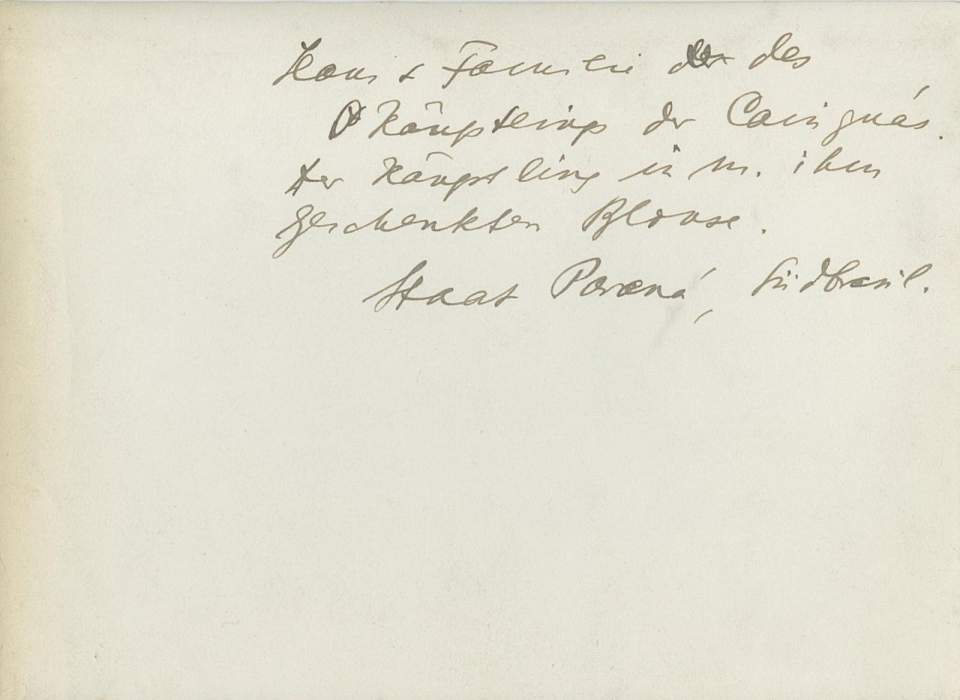 Haus + Familie des
Häuptlings der Cainguás.
Der Häuptling in m. ihm
geschenkten Blouse.
Staat Paraná, Südbrasil.